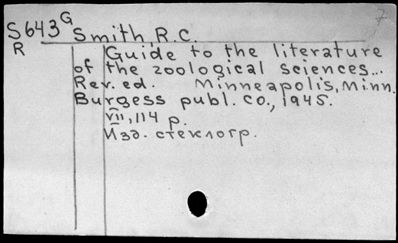 S643 G Smith R.C.
R Guide to the literature
of the zoological sciences...
Rev. ed. Minneapolis, Minn.
Burgess publ. co., 1945.
VII, 114 p.
Изд. стеклогр.